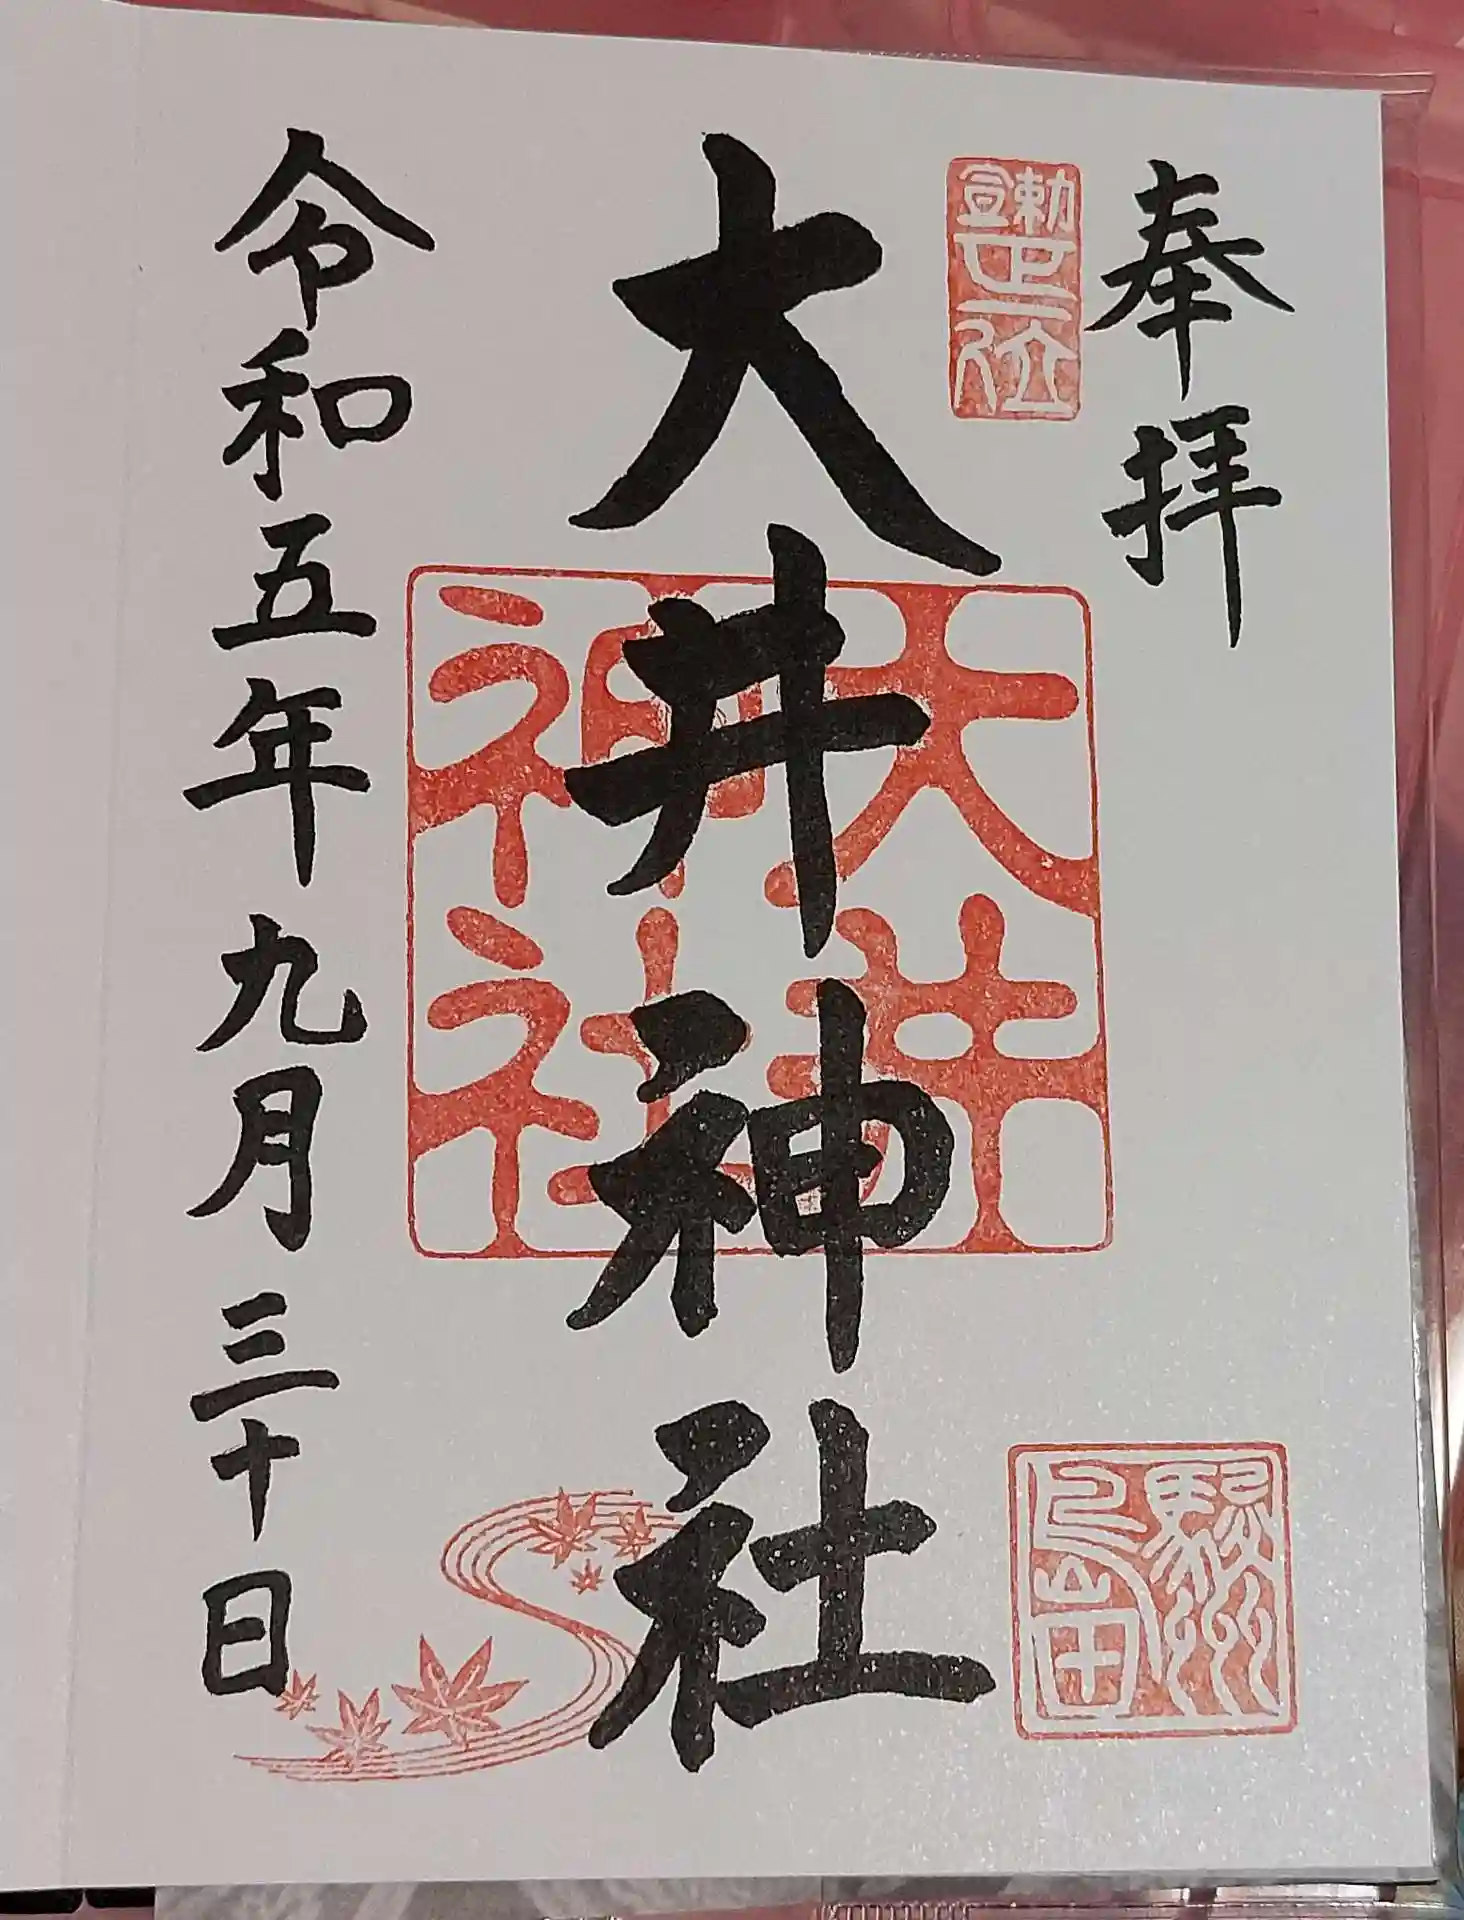 奉拝
勅宣
正一位
大井神社
大井
神社
駿州
島田
令和五年九月三十日